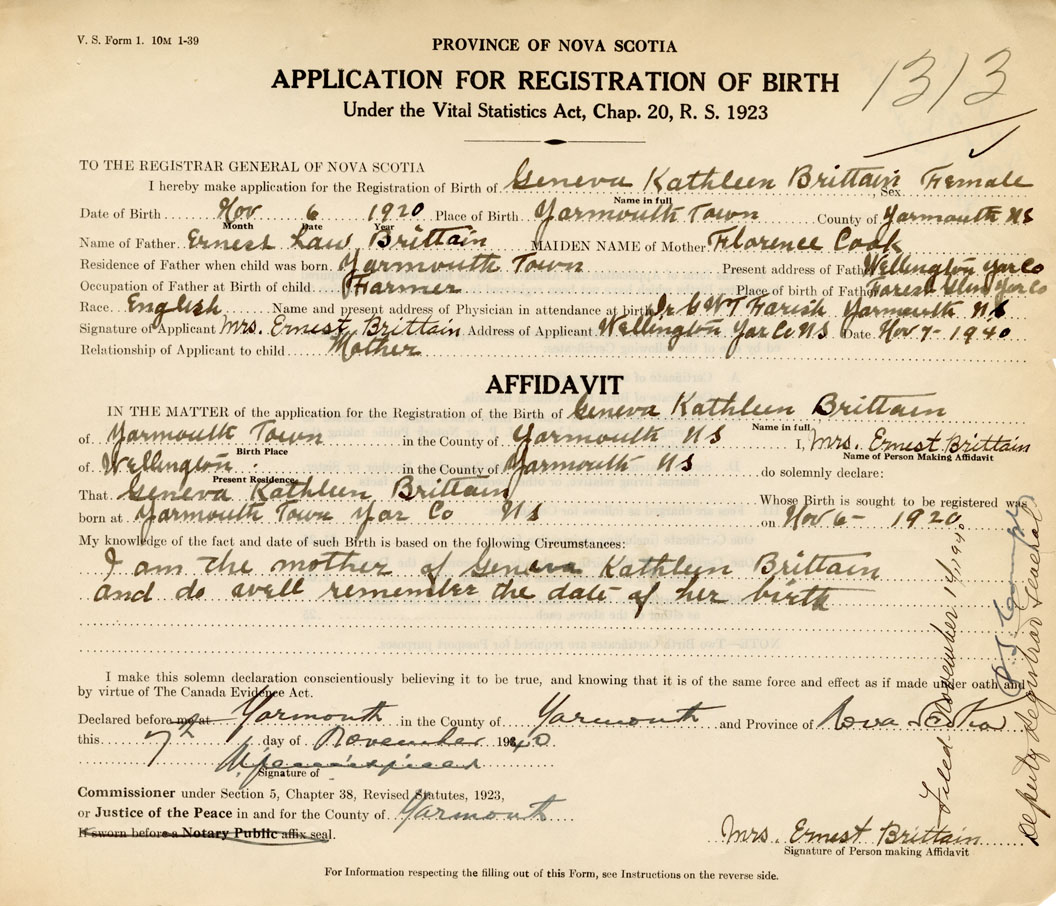 V. S. Form 1. 10M 1-39
PROVINCE OF NOVA SCOTIA
1313
APPLICATION FOR REGISTRATION OF BIRTH
Under the Vital Statistics Act, Chap. 20, R. S. 1923
TO THE REGISTRAR GENERAL OF NOVA SCOTIA
I hereby make application for the Registration of Birth of Geneva Kathleen Brittain Sex Female
Name in full
Date of Birth Nov 6 1920 Place of Birth Yarmouth Town County of Yarmouth NS
Month Date Year
Name of Father Ernest Law Brittain MAIDEN NAME of Mother Florence Cook
Residence of Father when child was born. Yarmouth Town Present address of Father Wellington Yar Co
Occupation of Father at Birth of child Farmer Place of birth of Father Forest Glen Yar Co
Race English Name and present address of Physician in attendance at birth Dr G W T Farish Yarmouth NS
Signature of Applicant Mrs. Ernest Brittain Address of Applicant Wellington Yar Co NS Date Nov 7 - 1940
Relationship of Applicant to child Mother
AFFIDAVIT
IN THE MATTER of the application for the Registration of the Birth of Geneva Kathleen Brittain
Name in full
of Yarmouth Town in the County of Yarmouth NS I, Mrs. Ernest Brittain
Birth Place Name of Person Making Affidavit
of Wellington in the County of Yarmouth NS do solemnly declare:
Present Residence
That Geneva Kathleen Brittain Whose Birth is sought to be registered was
born at Yarmouth Town Yar Co NS on Nov 6 - 1920
My knowledge of the fact and date of such Birth is based on the following Circumstances:
I am the mother of Geneva Kathleen Brittain
and do well remember the date of her birth
I make this solemn declaration conscientiously believing it to be true, and knowing that it is of the same force and effect as if made under oath and
by virtue of The Canada Evidence Act.
Declared before me at Yarmouth in the County of Yarmouth and Province of Nova Scotia
this 7th day of November 1940.
Signature of
Commissioner under Section 5, Chapter 38, Revised Statutes, 1923,
or Justice of the Peace in and for the County of Yarmouth
If sworn before a Notary Public affix seal.
Mrs. Ernest Brittain
Signature of Person making Affidavit
For Information respecting the filling out of this Form, see Instructions on the reverse side.
Filed November 14/1940
Deputy Registrar General